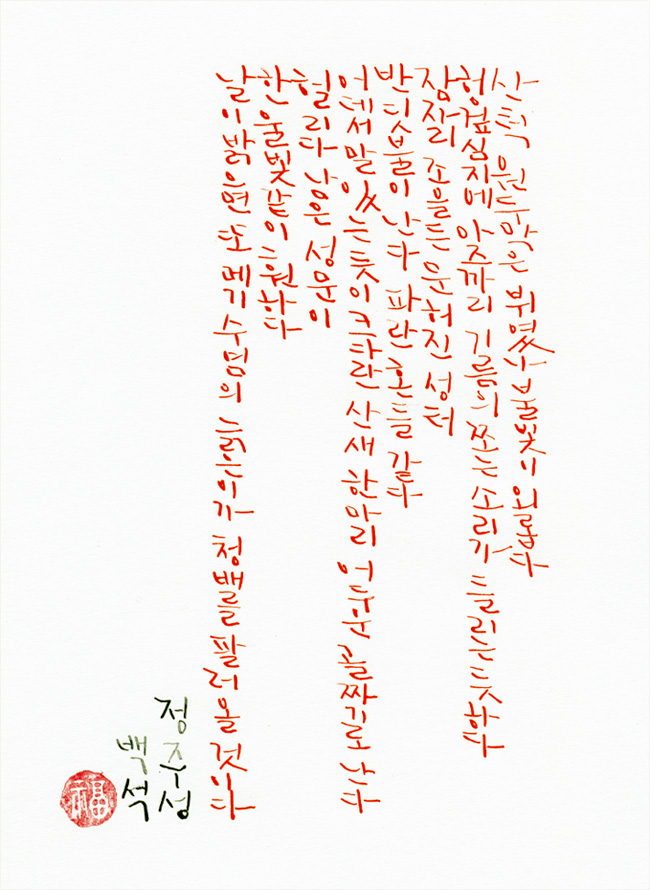 산턱 원두막은 뷔였나 불빛이 외롭다
헝겊심지에 아주까리 기름의 쪼는 소리가 들리는 듯하다
잠자리 조을든 문허진 성터
반딧불이 난다 파란 혼들 같다
어데서 말 있는 듯이 크다란 산새 한마리 어두운 골짜기로 난다
헐리다 남은 성문이
한울빛같이 훤하다
날이 밝으면 또 메기수염의 늙은이가 청배를 팔러 올 것이다
정주성
백석
福